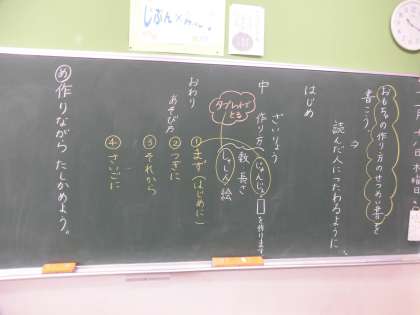 おもちゃの作り方のせつめい書を
書こう。
読んだ人につたわるように、
はじめ
中
ざいりょう
作り方
じゅんじょ
を作ります
数、長さ
しゃしん
絵
タブレットで
とる
①まず(はじめに)
②つぎに
③それから
④さいごに
おわり
あそび方
め 作りながら たしかめよう。